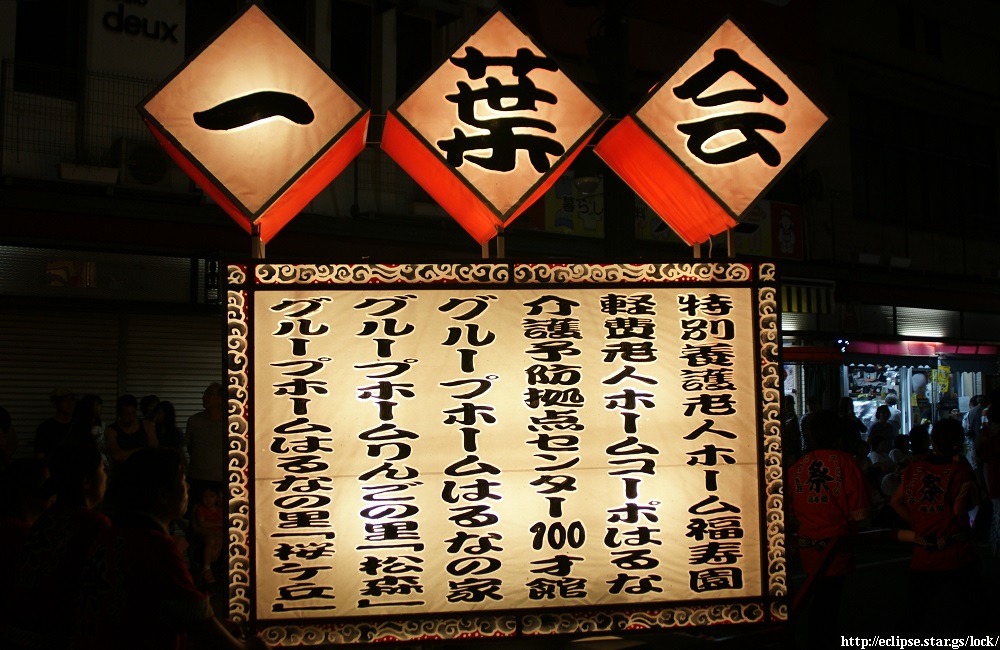 deux
一葉会
特別養護老人ホーム福寿園
軽費老人ホームコーポはるな
介護予防拠点センター100才館
グループホームはるなの家
グループホームりんごの里「松森」
グループホームはるなの里「桜ヶ丘」
暮らし
祭
祭
http://eclipse.star.gs/lock/